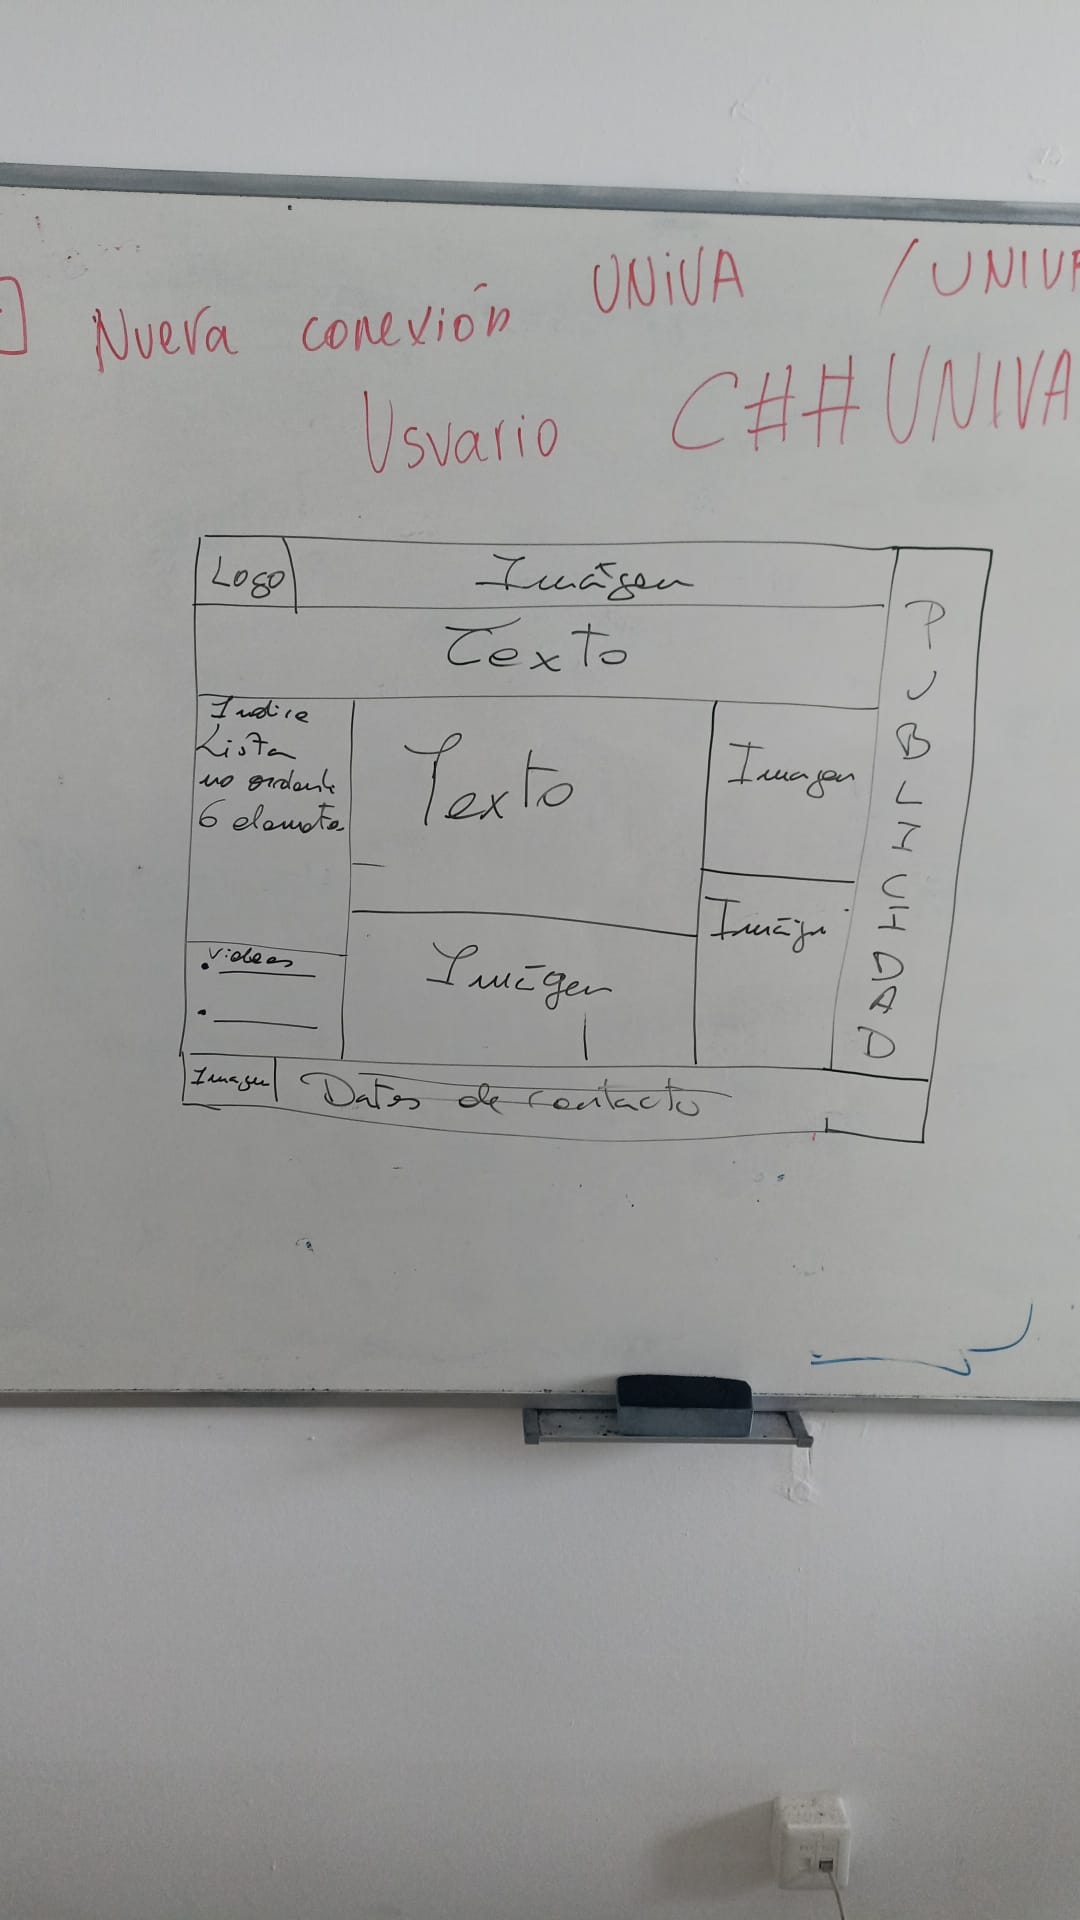 Nueva conexión UNIVA / UNIVA
Usuario C##UNIVA
Logo
Imágen
Texto
Indice
Lista
no ordenada
6 elementos
Texto
Imagen
Imágen
Videos
Imágen
Imagen
Datos de contacto
PUBLICIDAD